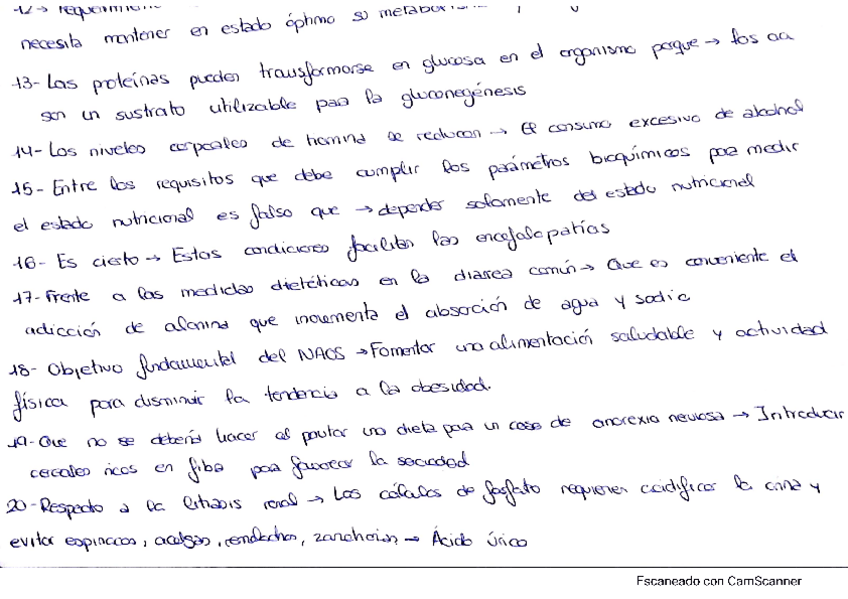 12 → requerimiento
necesita mantener en estado óptimo su metabo
13- Las proteínas pueden transformarse en glucosa en el organismo porque → los aa
son un sustrato utilizable para la gluconegénesis
14- Los niveles corporales de tiamina se reducen → El consumo excesivo de alcohol
15- Entre los requisitos que debe cumplir los parámetros bioquímicos para medir
el estado nutricional es falso que → depender solamente del estado nutricional
16- Es cierto → Estas condiciones facilitan las encefalopatías
17- Frente a las medidas dietéticas en la diarrea común → Que es conveniente el
adicción de alanina que incrementa el absorción de agua y sodio
18- Objetivo fundamental del NAOS → Fomentar una alimentación saludable y actividad
física para disminuir la tendencia a la obesidad.
19- Que no se debería hacer al pautar una dieta para un caso de anorexia nerviosa → Introducir
cereales ricos en fibra para favorecer la saciedad
20- Respecto a la litiasis renal → Los cálculos de fosfato requieren acidificar la orina y
evitar espinacas, acelgas, remolachas, zanahorias → Ácido úrico
Escaneado con CamScanner